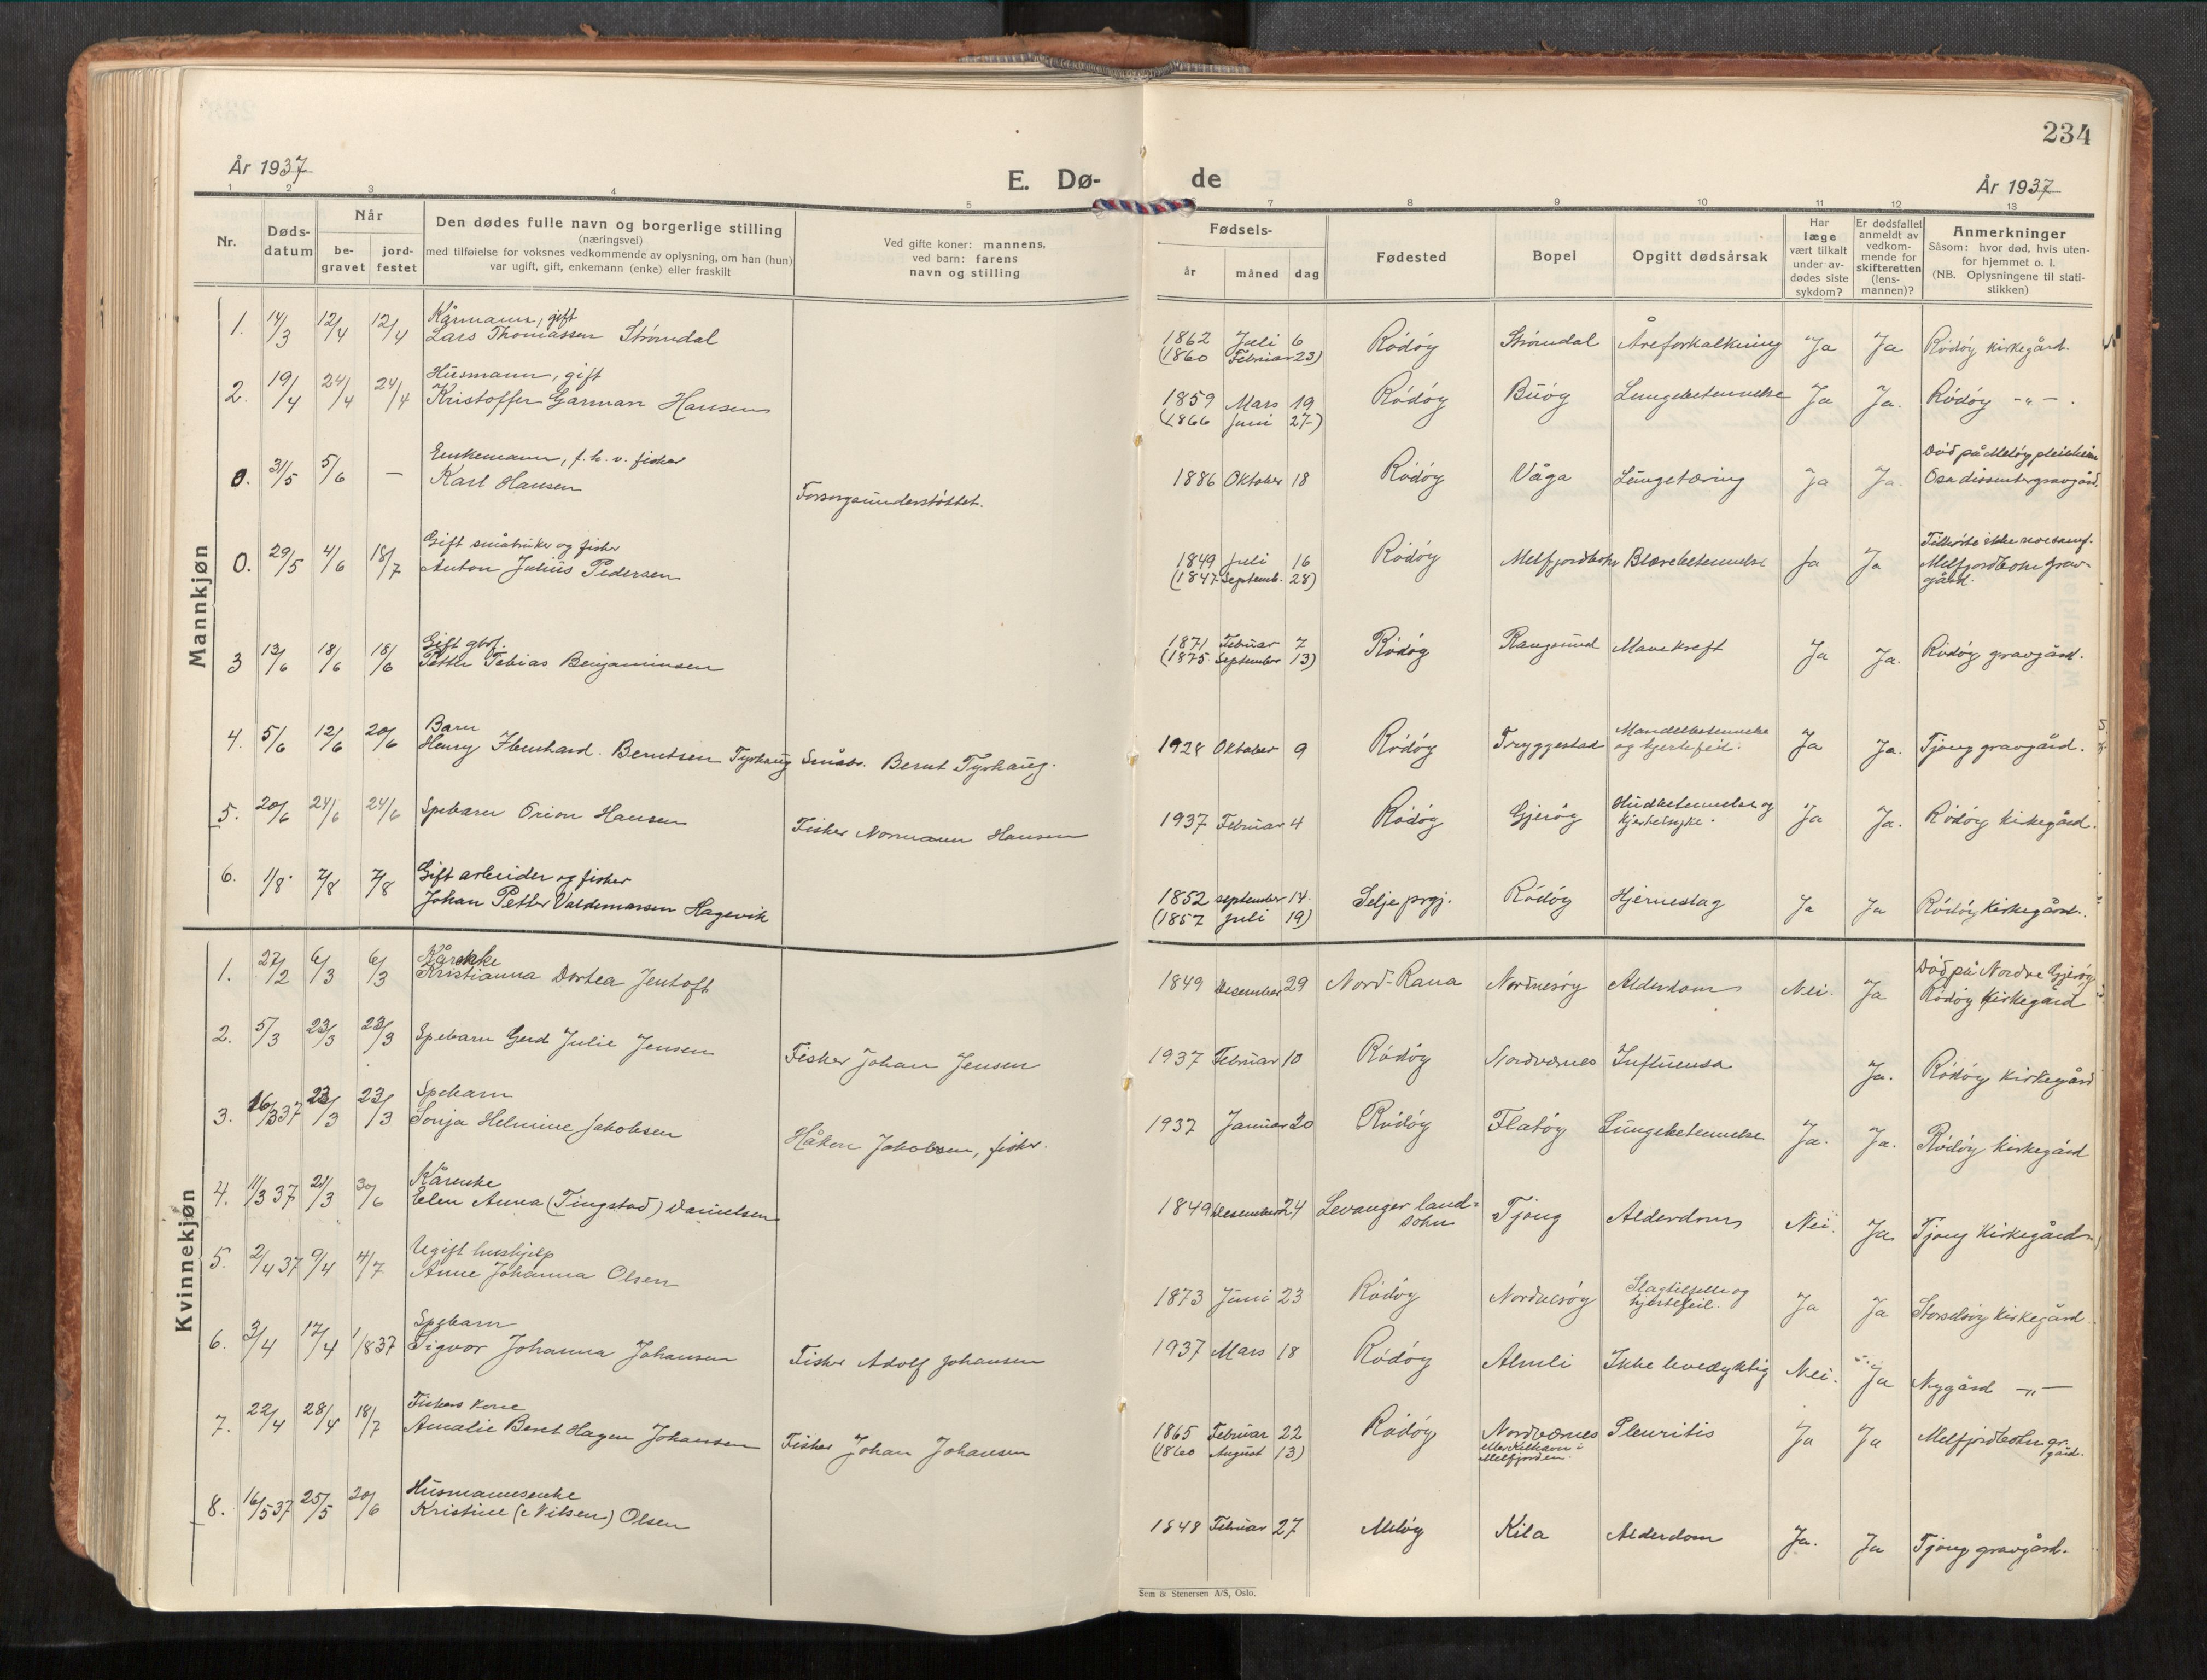 234
År 1937
E. Dø-
de
År 1937
1 2 3 4 5 7 8 9 10 11 12 13
Nr.
Døds-
datum
Når
be-
gravet
jord-
festet
Den dødes fulle navn og borgerlige stilling
(næringsvei)
med tilføielse for voksnes vedkommende av oplysning, om han (hun)
var ugift, gift, enkemann (enke) eller fraskilt
Ved gifte koner: mannens,
ved barn: farens
navn og stilling
Fødsels-
år måned dag
Fødested
Bopel
Opgitt dødsårsak
Har
læge
vært tilkalt
under av-
dødes siste
sykdom?
Er dødsfallet
anmeldt av
vedkom-
mende for
skifteretten
(lens-
mannen)?
Anmerkninger
Såsom: hvor død, hvis uten-
for hjemmet o. l.
(NB. Oplysningene til stati-
stikken)
Mannkjøn
Kårmann, gift
1. 14/3 12/4 12/4 Lars Thomassen Strømdal 1862 Juli 6 Rödöy Strømdal Åreforkalkning Ja Ja Rödöy kirkegård.
(1860 Februar 23)
Husmann, gift
2. 19/4 24/4 24/4 Kristoffer Garman Hansen 1859 Mars 19 Rödöy Buöy Lungebetennelse Ja Ja. Rödöy -"- .
(1866 Juni 27)
Enkemann, f.h.v. fisker Död på Melöy pleieheim
0. 31/5 5/6 — Karl Hansen Forsorgsunderstöttet. 1886 Oktober 18 Rödöy Våga Lungetæring Ja Ja. Osa dissentergravgård.
Gift småbruker og fisker
0. 29/5 4/6 18/7 Anton Julius Pedersen 1849 Juli 16 Rödöy Melfjordbotn Blærebetennelse Ja Ja Melfjordbotn grav-
(1847 Septemb. 28) gård.
Gift gbr.
3 13/6 18/6 18/6 Petter Tobias Benjaminsen 1871 Februar 7 Rödöy Rangsund Mavekreft Ja Ja. Rödöy gravgård.
(1875 September 13)
Barn Mandelbetennelse
4. 5/6 12/6 20/6 Henry Edenhard Berntsen Tyshaug Småbr. Bernt Tyshaug. 1928 Oktober 9 Rödöy Tryggestad og hjertefeil. Ja Ja. Tjong gravgård.
Hudbetennelse og
5. 20/6 24/6 24/6 Spebarn Orion Hansen Fisker Normann Hansen 1937 Februar 4 Rödöy Gjeröy hjertesyke. Ja Ja. Rödöy kirkegård.
Gift arbeider og fisker
6. 1/8 7/8 7/8 Johan Petter Valdemarsen Hagevik 1852 september 14. Selje prgj. Rödöy Hjerneslag Ja Ja Rödöy Kirkegård.
(1857 Juli 19)
Kvinnekjøn
Kårenke Död på Nordre Gjeröy
1. 27/2 6/3 6/3 Kristianna Dortea Jentoft 1849 Desember 29 Nord-Rana Nordnesöy Alderdom Nei. Ja Rödöy kirkegård
2. 5/3 23/3 23/3 Spebarn Gerd Julie Jensen Fisker Johan Jensen 1937 Februar 10 Rödöy Nordværnes Influensa Ja. Rödöy kirkegård
Spebarn
3. 16/3 37 23/3 23/3 Sonja Helmine Jakobsen Håkon Jakobsen, fisker. 1937 Januar 20 Rödöy Flatöy Lungebetennelse Ja. Ja. Rödöy kirkegård
Kårenke
4. 11/3 37 21/3 30/6 Elen Anna (Tingstad) Danielsen 1849 Desember 24 Levanger land= Tjong Alderdom Nei. Ja Tjong Kirkegård
sokn
Ugift hushjelp
5. 2/4 37 9/4 4/7 Anne Johanna Olsen 1873 Juni 23 Rödöy Nordnesöy Slagtilfelle og Ja Ja Storselsöy Kirkegård
hjertefeil.
Spebarn
6. 3/4 17/4 1/8 37 Sigvor Johanna Johansen Fisker Adolf Johansen 1937 Mars 18 Rödöy Almli Ikke levedyktig Nei. Ja Nygård -"-
Fiskers kone
7. 22/4 28/4 18/7 Amalie Beret Hagen Johansen Fisker Johan Johansen 1865 Februar 22 Rödöy Nordværnes Pleuritis Ja Ja Melfjordbotn gr.
(1860 August 13) eller Kilhavn i gård.
Melfjorden.
Husmannsenke
8. 16/5 37 25/5 20/6 Kristine (Nilsen) Olsen 1848 Februar 27 Melöy Kila Alderdom Ja. Ja Tjong gravgård.
Sem & Stenersen A/S, Oslo.